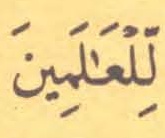 لِّلْعَـٰلَمِينَ